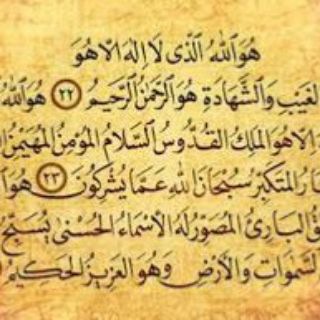 هُوَ اللهُ الَّذِى لَا اِلٰهَ اِلَّا هُوَ
لغَيْبِ وَالشَّهَادَةِ هُوَ الرَّحْمٰنُ الرَّحِيمُ ﴿٢٢﴾ هُوَ اللهُ
لَا هُوَ اَلْمَلِكُ الْقُدُّوسُ السَّلَامُ الْمُؤْمِنُ الْمُهَيْمِنُ
ارُ الْمُتَكَبِّرُ سُبْحَانَ اللهِ عَمَّا يُشْرِكُونَ ﴿٢٣﴾ هُوَ
قُ الْبَارِئُ الْمُصَوِّرُ لَهُ الْاَسْمَاءُ الْحُسْنٰى يُسَبِّحُ
لسَّمٰوَاتِ وَالْاَرْضِ وَهُوَ الْعَزِيزُ الْحَكِيمُ